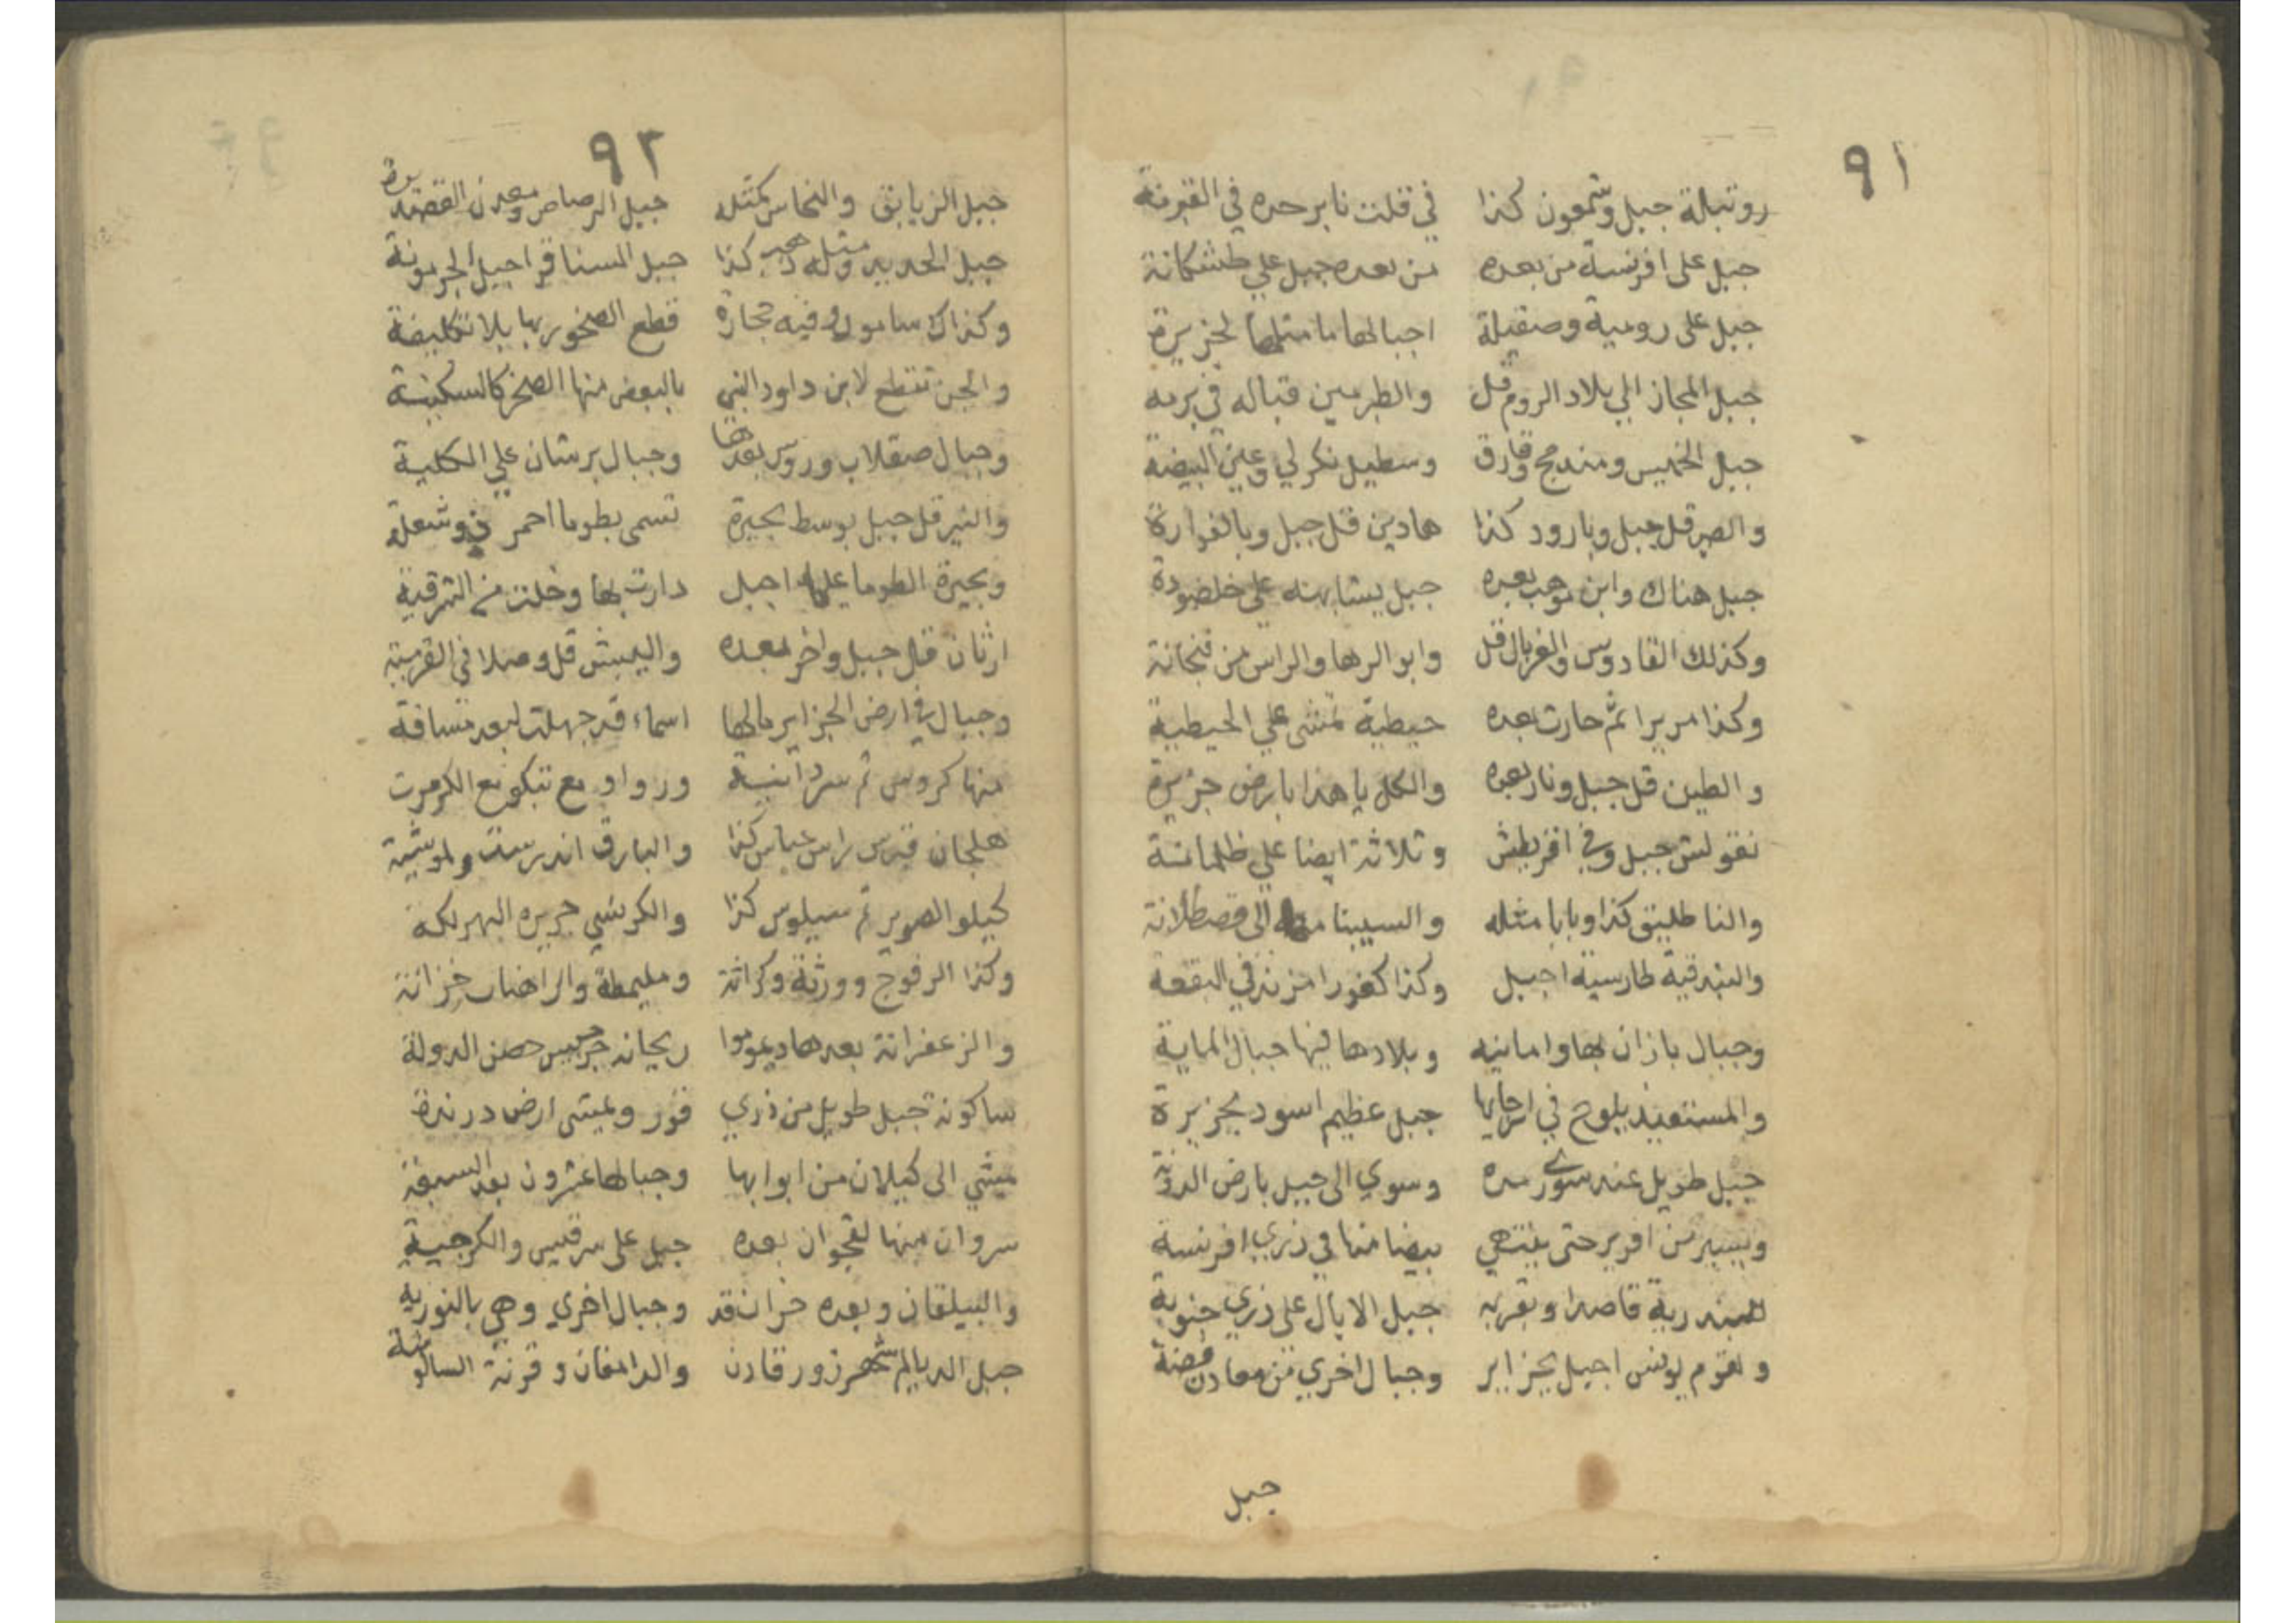 ٩١
روتبلة جبل وشمعون كذا في قلت نابر حده في القبرنة
جبل على افرنسة من بعده من بعده جبل علي طشكانة
جبل على رومية وصقيلة اجبالها ما مثلها لجزيرة
جبل المجاز الي بلاد الروم قل والطرمين قباله في برمه
جبل الخميس ومندمج وقارق وسطيل نكرلي وعين البيضة
والصبر قل جبل وبارود كذا هادين قل جبل وبالفوارة
جبل هناك وابن موهب بعده جبل يشابهنه علي خلضودة
وكذلك القادوس والغربال قل وابو الرها والراس من فنجانة
وكذا مريرا ثم حارت بعده حيطية تمشى علي الحيطية
والطين قل جبل ونار بعده والكل يا هذا بارض جزيرة
نقولش جبل وفي اقريطش وثلاثة ايضا علي ظلمانسة
والناطليق كذا وبابا مثله والسيبنا الى قصطلانة
والبندقية طارسية اجبل وكذا كفورا مزند في البقعة
وجبال بازان بها وامانيه وبلادها فيها جبال المانية
والمستعيذ يلوح في ارجايها جبل عظيم اسود بجزيرة
جبل طويل عنه سوى سده وسوي الى جبيل بارض الدزنة
ويسير من افرير حتى ينتهي بيضا منا في ذري افرنسة
للبندرية قاصدا وبقربه جبل الابال على ذري جنوية
ولقوم يونس اجبل بجزاير وجبال اخري من معادن فضة
جبل
٩٢
جبل الزيابق والنحاس كمثله جبل الرصاص ومعدن القصديرة
جبل الحديد مثله وله كذا جبل المسنا قرا جبيل الجرمونة
وكذاك سامول وفيه حجارة قطع الصخور بها بلا تكليفة
والجن تقطع لابن داود النبي بالبعض منها الصخر كالسكينة
وجبال صقلاب وروس بعدها وجبال برشان علي الكلية
والنير قل جبل بوسط بحيرة تسمى بطوما احمر في وشعلة
وبحيرة الطوما عليها اجبل دارت بها وخلت من الشرقية
ارثان قل جبل واخر بعده واليبش قل وصلا في القرمية
وجبال في ارض الجزاير مالها اسماء قد جهلت لبعد مسافة
منها كروس ثم سردانية ورواو مع تبكو مع الكرمرت
هلجان قبرس راس عباس كذا والبارق اندرست ولموشية
كيلو الصوير ثم سيلوس كذا والكرنسي جزيره البهرلكة
وكذا الرفوج وورثة وكراثة ومليمطة والراهبات خزانة
والزعفرانة بعدها ديموا ريحانه جرجيس حصن الدولة
ساكونة جبل طويل من ذري فور ويمشى ارض درندة
ميشي الى كيلان من ابوابها وجبالها عشرون بعد السبعة
سروان منها لقجوان بعده جبل على سرقيس والكرجية
والبيلقان وبعده خزان قد وجبال اخري وهي بالنورية
جبل الديالم شهرزور قارن والدامغان وقرنة السالومية